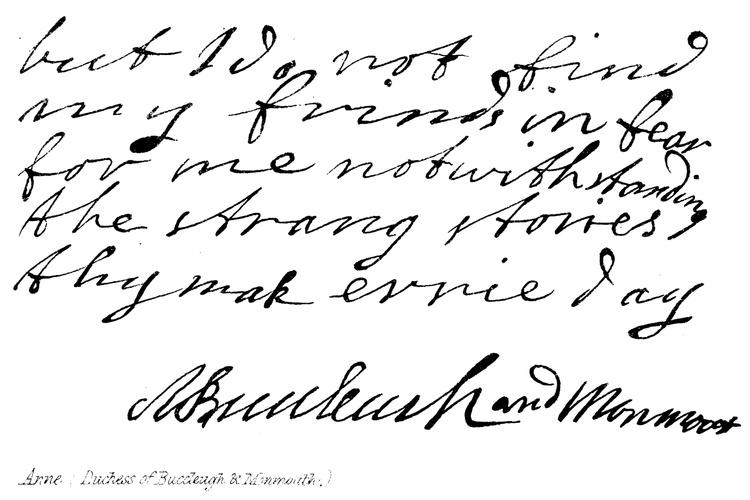 but I do not find
my frinds in fear
for me notwithstanding
the strang stories
thy mak evrie day
ABuccleuch and Monmout
Anne (Duchess of Buccleugh & Monmouth.)